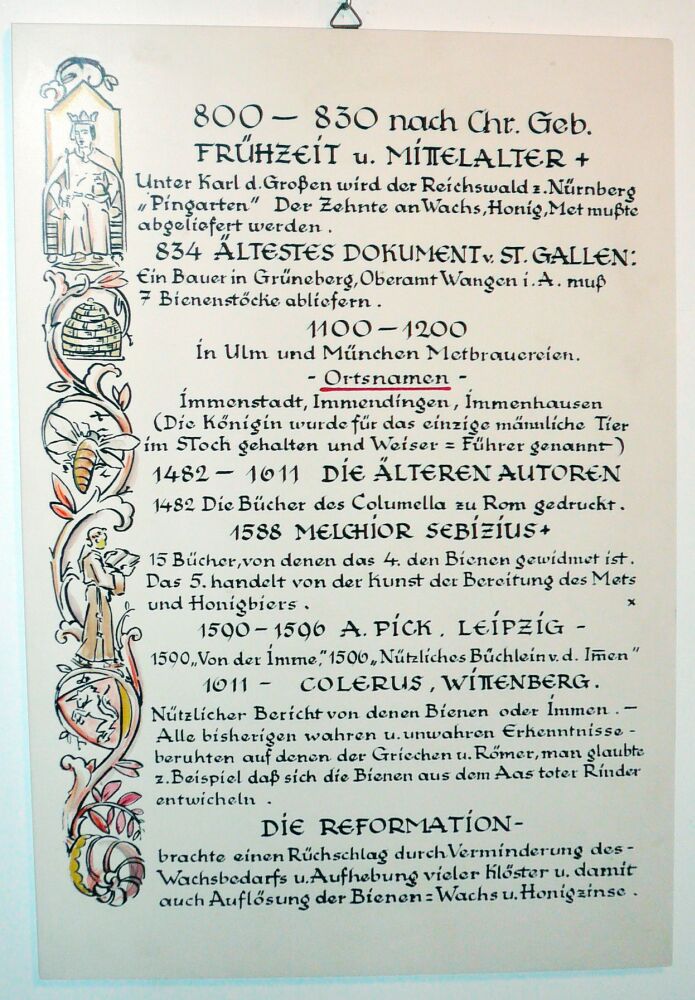 800 – 830 nach Chr. Geb.
FRÜHZEIT u. MITTELALTER +
Unter Karl d. Großen wird der Reichswald z. Nürnberg
„Pingarten" Der Zehnte an Wachs, Honig, Met mußte
abgeliefert werden .
834 ÄLTESTES DOKUMENT v. ST. GALLEN:
Ein Bauer in Grüneberg, Oberamt Wangen i. A. muß
7 Bienenstöcke abliefern .
1100 – 1200
in Ulm und München Metbrauereien.
- Ortsnamen -
Immenstadt, Immendingen, Immenhausen
(Die Königin wurde für das einzige männliche Tier
im SToch gehalten und Weiser = Führer genannt )
1482 – 1611 DIE ÄLTEREN AUTOREN
1482 Die Bücher des Columella zu Rom gedruckt .
1588 MELCHIOR SEBIZIUS +
15 Bücher, von denen das 4. den Bienen gewidmet ist.
Das 5. handelt von der Kunst der Bereitung des Mets
und Honigbiers . x
1590 – 1596 A. PICK . LEIPZIG -
1590 „Von der Imme," 1506 „Nützliches Büchlein v. d. Im̅en"
1611 – COLERUS , WITTENBERG .
Nützlicher Bericht von denen Bienen oder Immen . –
Alle bisherigen wahren u. unwahren Erkenntnisse -
beruhten auf denen der Griechen u. Römer, man glaubte
z. Beispiel daß sich die Bienen aus dem Aas toter Rinder
entwicheln .
DIE REFORMATION -
brachte einen Rüchschlag durch Verminderung des -
Wachsbedarfs u. Aufhebung vieler Klöster u. damit
auch Auflösung der Bienen = Wachs u. Honigzinse .